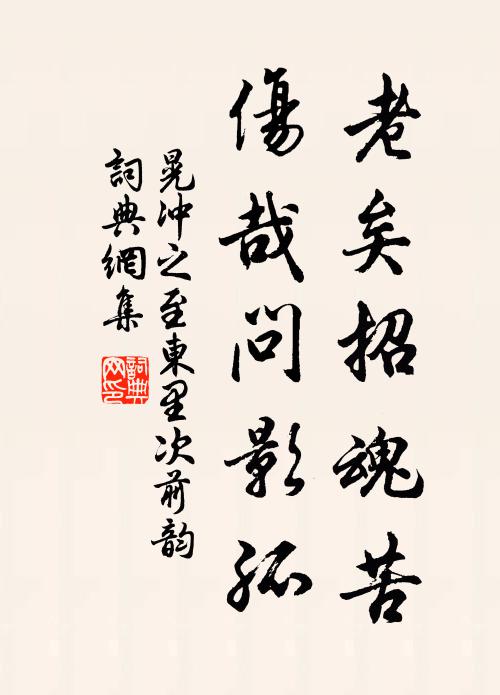 老矣招魂苦
傷哉問影孤
晃沖之至東里次前韵
詞典網集
詞典網印